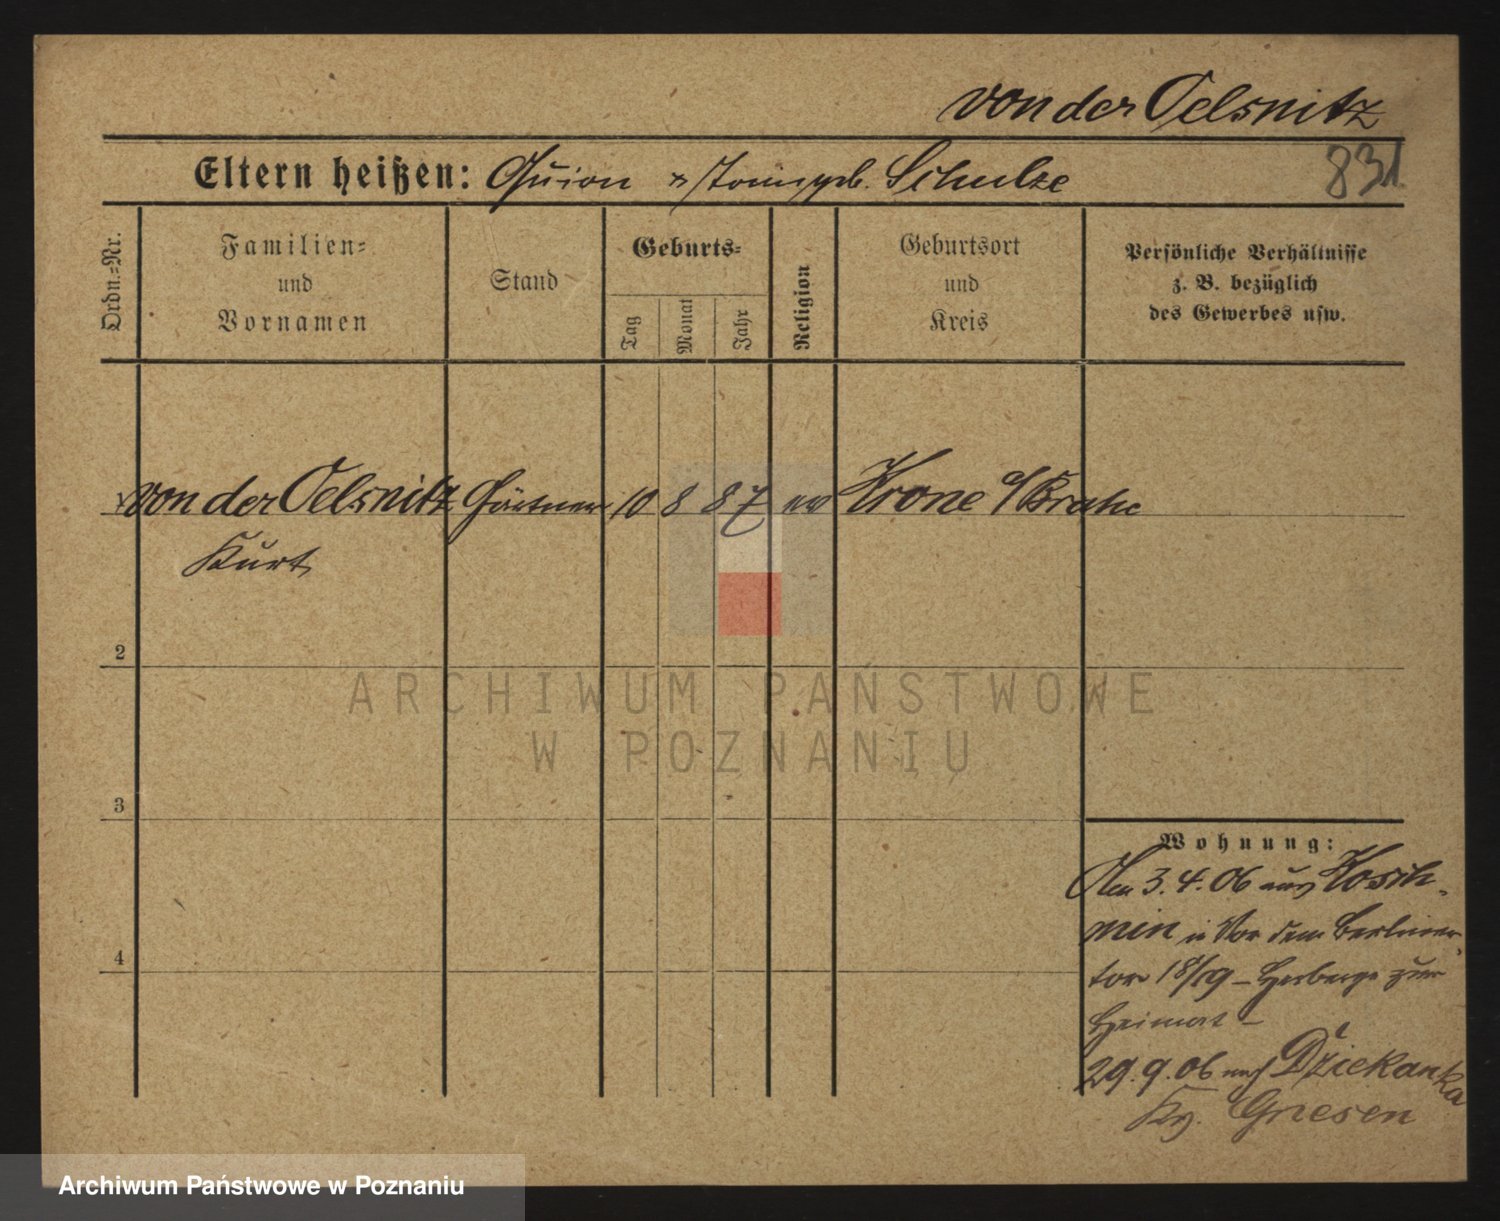 von der Oelsnitz
Eltern heißen: Guion geb. Schulze
831
Ordn.-Nr.
Familien-
und
Vornamen
Stand
Geburts-
Tag
Monat
Jahr
Religion
Geburtsort
und
Kreis
Persönliche Verhältnisse
z. B. bezüglich
des Gewerbes usw.
von der Oelsnitz Gärtner 10 8 87 ev Krone a/Brahe
Kurt
2
ARCHIWUM PAŃSTWOWE
W POZNANIU
3
Wohnung:
3. 4. 06 aus Kosch-
min in Vor dem Berliner-
tor 18/19 – Herberge zur
Heimat –
4
29. 9. 06 nach Dziekanka
Kr. Gnesen
Archiwum Państwowe w Poznaniu